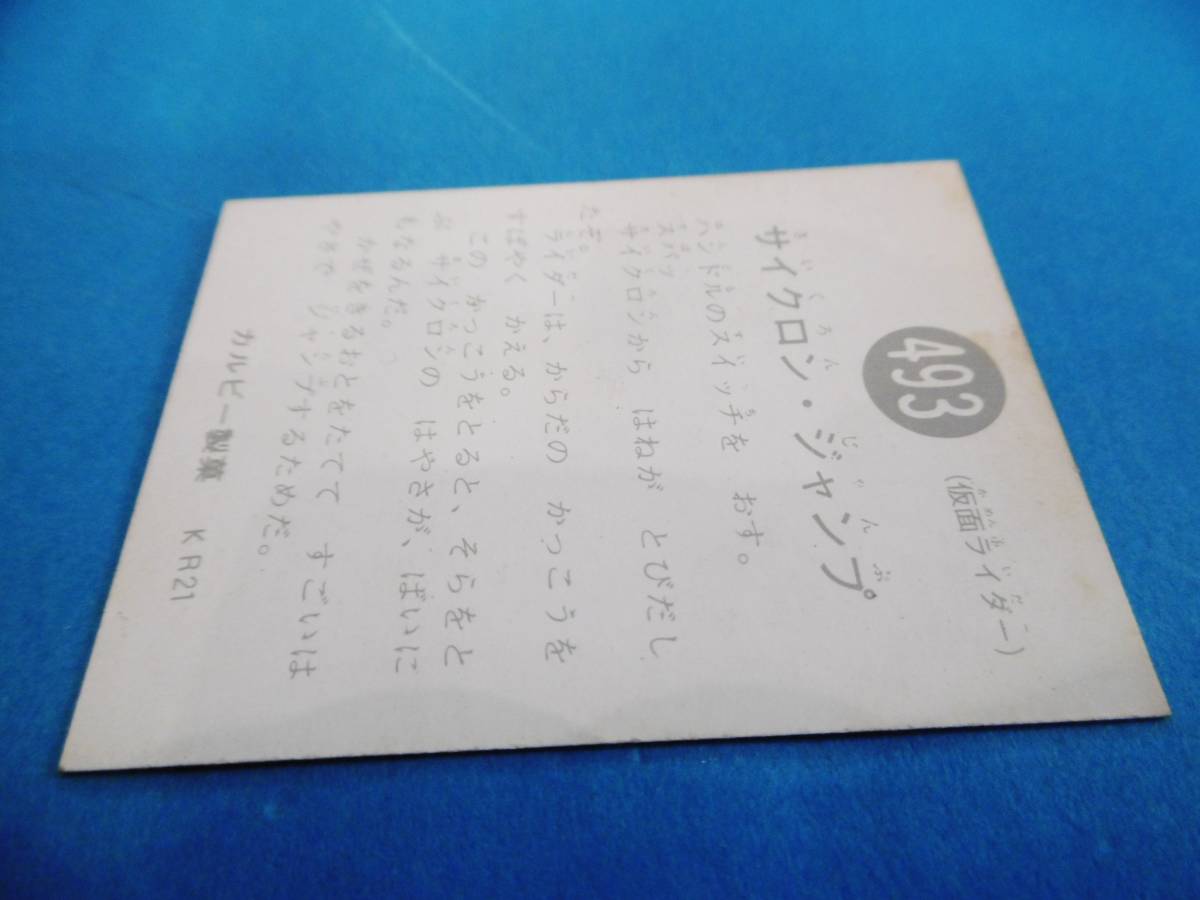 493
(仮面ライダー)
サイクロン・ジャンプ
ハンドルのスイッチを おす。
スパッ
サイクロンから はねが とびだし
たぞ。
ライダーは、からだの かっこうを
すばやく かえる。
この かっこうをとると、そらをと
ぶ サイクロンの はやさが、ばいに
もなるんだ。
かぜをきるおとをたてて すごいは
やさで ジャンプするためだ。
カルビー製菓 KR21